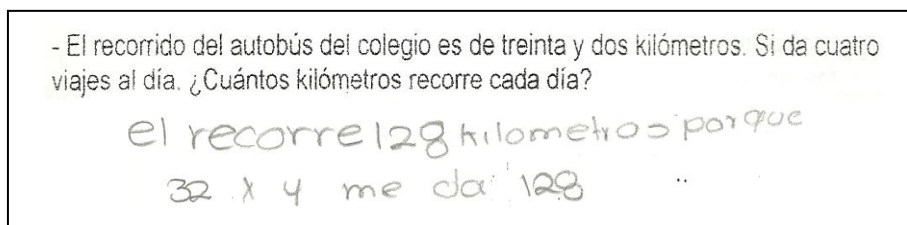 - El recorrido del autobús del colegio es de treinta y dos kilómetros. Si da cuatro
viajes al día. ¿Cuántos kilómetros recorre cada día?
el recorre 128 kilometros porque
32 x 4 me da 128